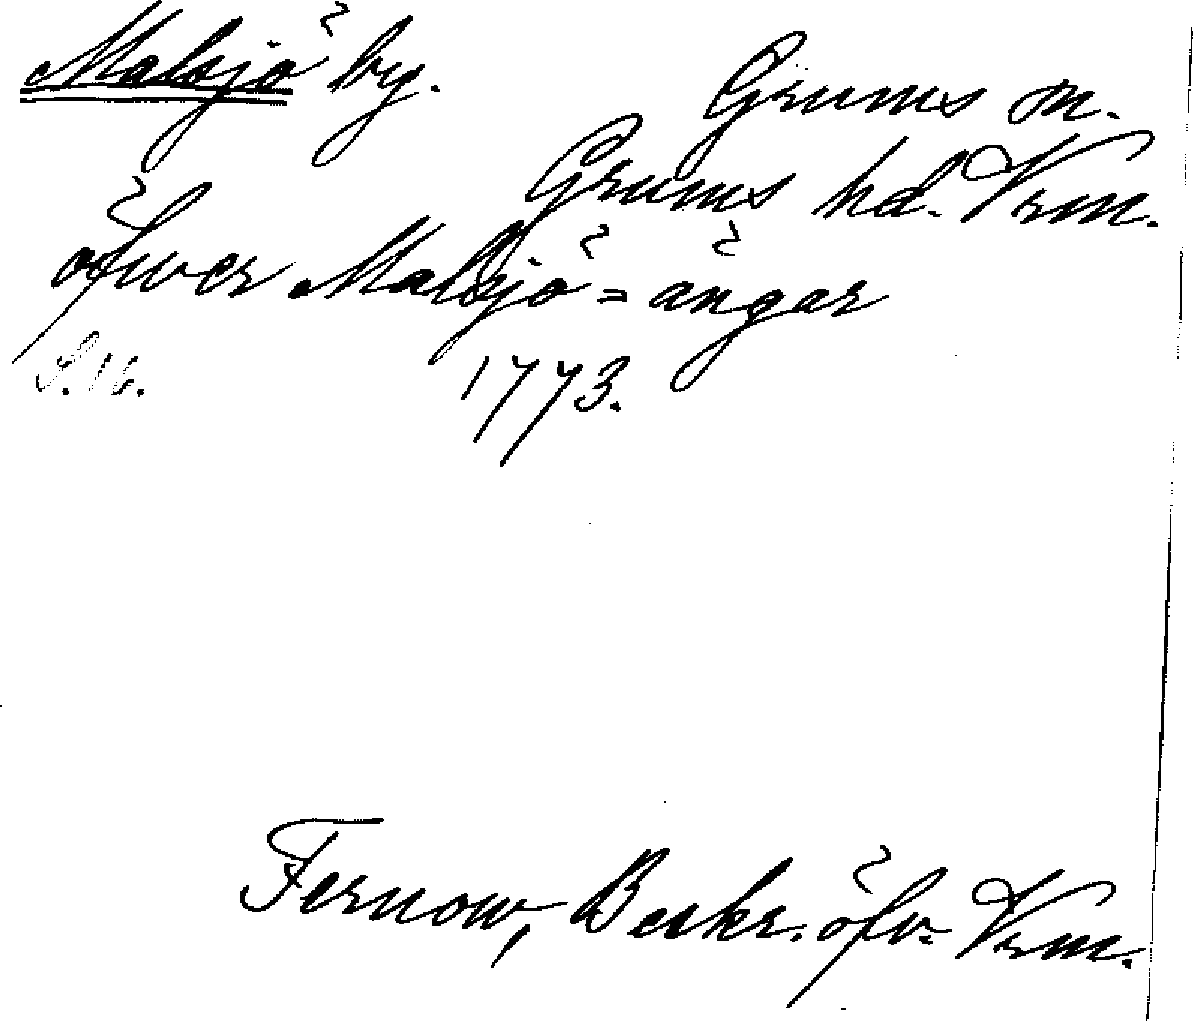 Malsjö by.
Grums sn.
Grums hd. Vrm.
öfwer Malsjö=ängar
S. 16.
1773.
Fernow, Beskr. öfv. Vrm.